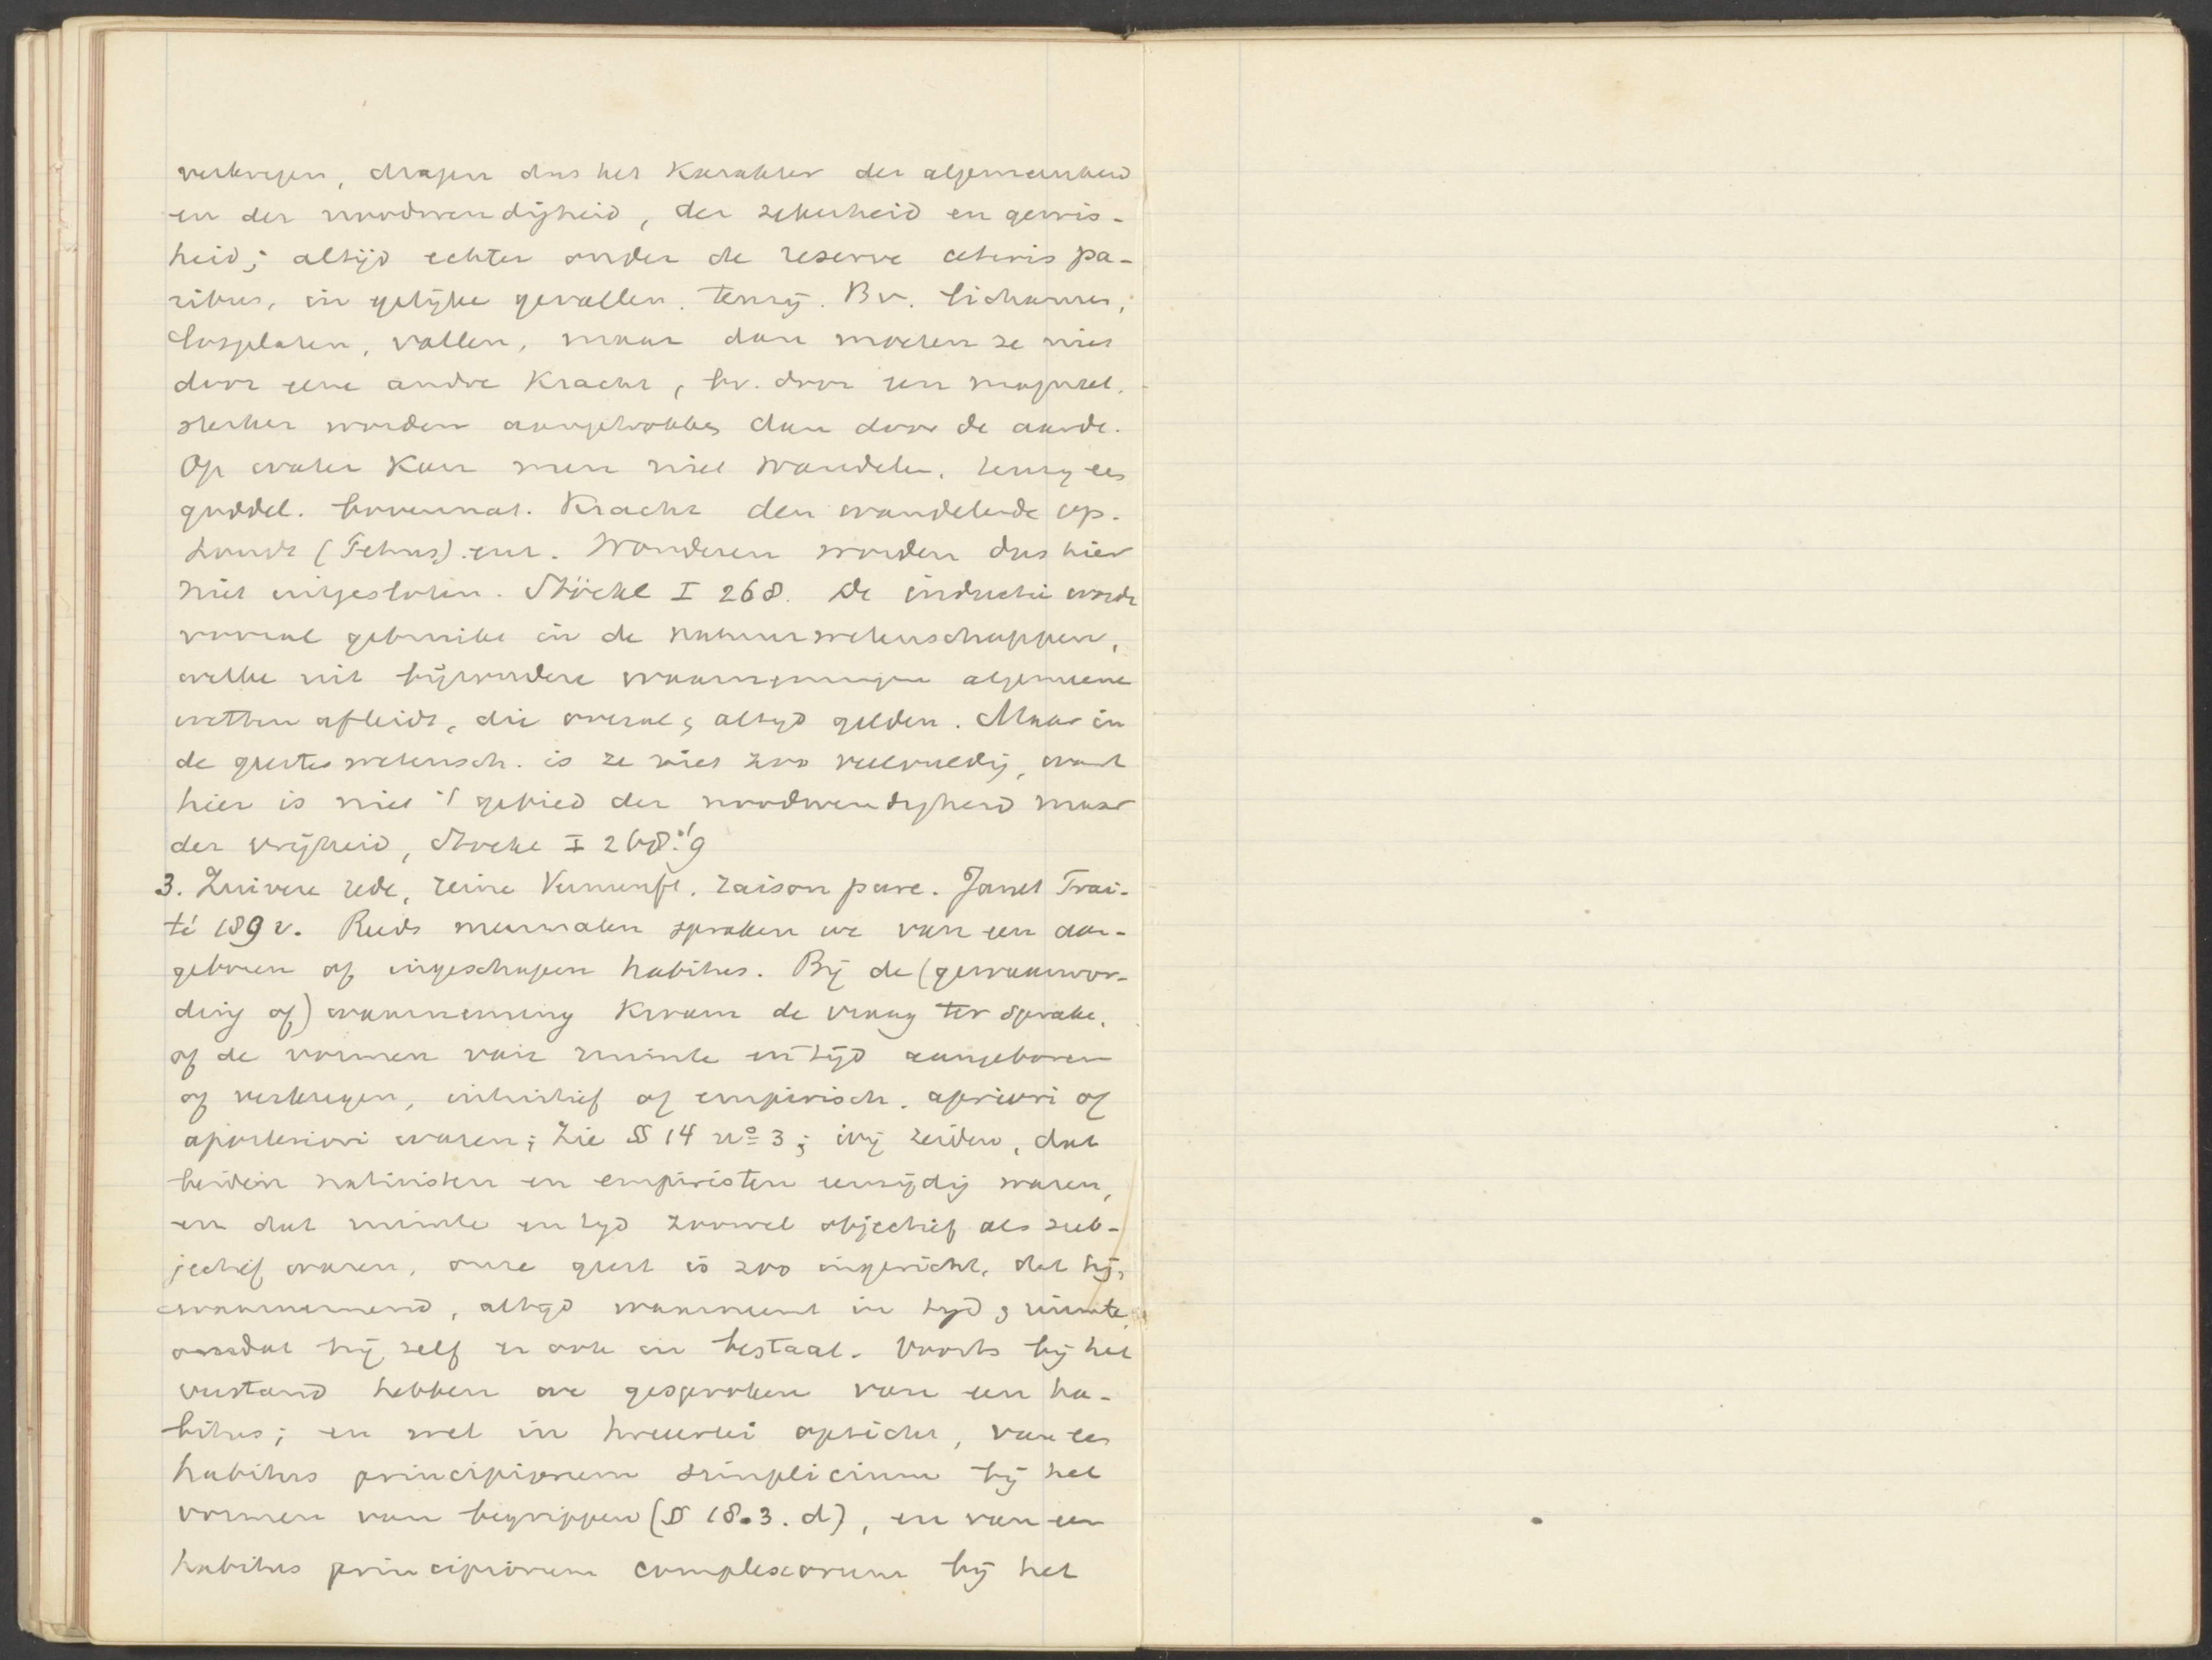 verkregen, dragen dus het karakter der algemeenheid
en der noodwendigheid, der zekerheid en gewis-
heid; altijd echter onder de reserve ceteris pa-
ribus, in gelijke gevallen. tenzij. Bv. lichamen,
losgelaten, vallen, maar dan moeten ze niet
door eene andre kracht, bv. door een magneet.
sterker worden aangetrokken dan door de aarde.
Op water kan men niet wandelen, tenzij een
goddel. bovennat. kracht den wandelende op-
houdt (Petrus). enz. Wonderen worden dus hier
niet uitgesloten. Stöckl I 268. De inductie wordt
vooral gebruikt in de natuurwetenschappen,
welke uit bijzondere waarnemingen algemeene
wetten afleidt, die overal & altijd gelden. Maar in
de geesteswetensch. is ze niet zoo veelvuldig, want
hier is niet 't gebied der noodwendigheid maar
der vrijheid, Stöckl I 268/9
3. Zuivere rede, reine Vernunft. raison pure. Janet Trai-
té 189 v. Reeds meermalen spraken we van een aan-
geboren of ingeschapen habitus. Bij de (gewaarwor-
ding of) waarneming kwam de vraag ter sprake,
of de vormen van ruimte en tijd aangeboren
of verkregen, intuitief of empirisch. apriori of
aposteriori waren; zie § 14 nº 3; wij zeiden, dat
beiden nativisten en empiristen eenzijdig waren,
en dat ruimte en tijd zoowel objectief als sub-
jectief waren, onze geest is zoo ingericht, dat hij,
waarnemend, altijd waarneemt in tijd & ruimte,
omdat hij zelf er ook in bestaat. Voorts bij het
verstand hebben we gesproken van een ha-
bitus; en wel in tweeërlei opzicht, van een
habitus principiorum simplicium bij het
vormen van begrippen (§ 18.3.d), en van een
habitus principiorum complexorum bij het